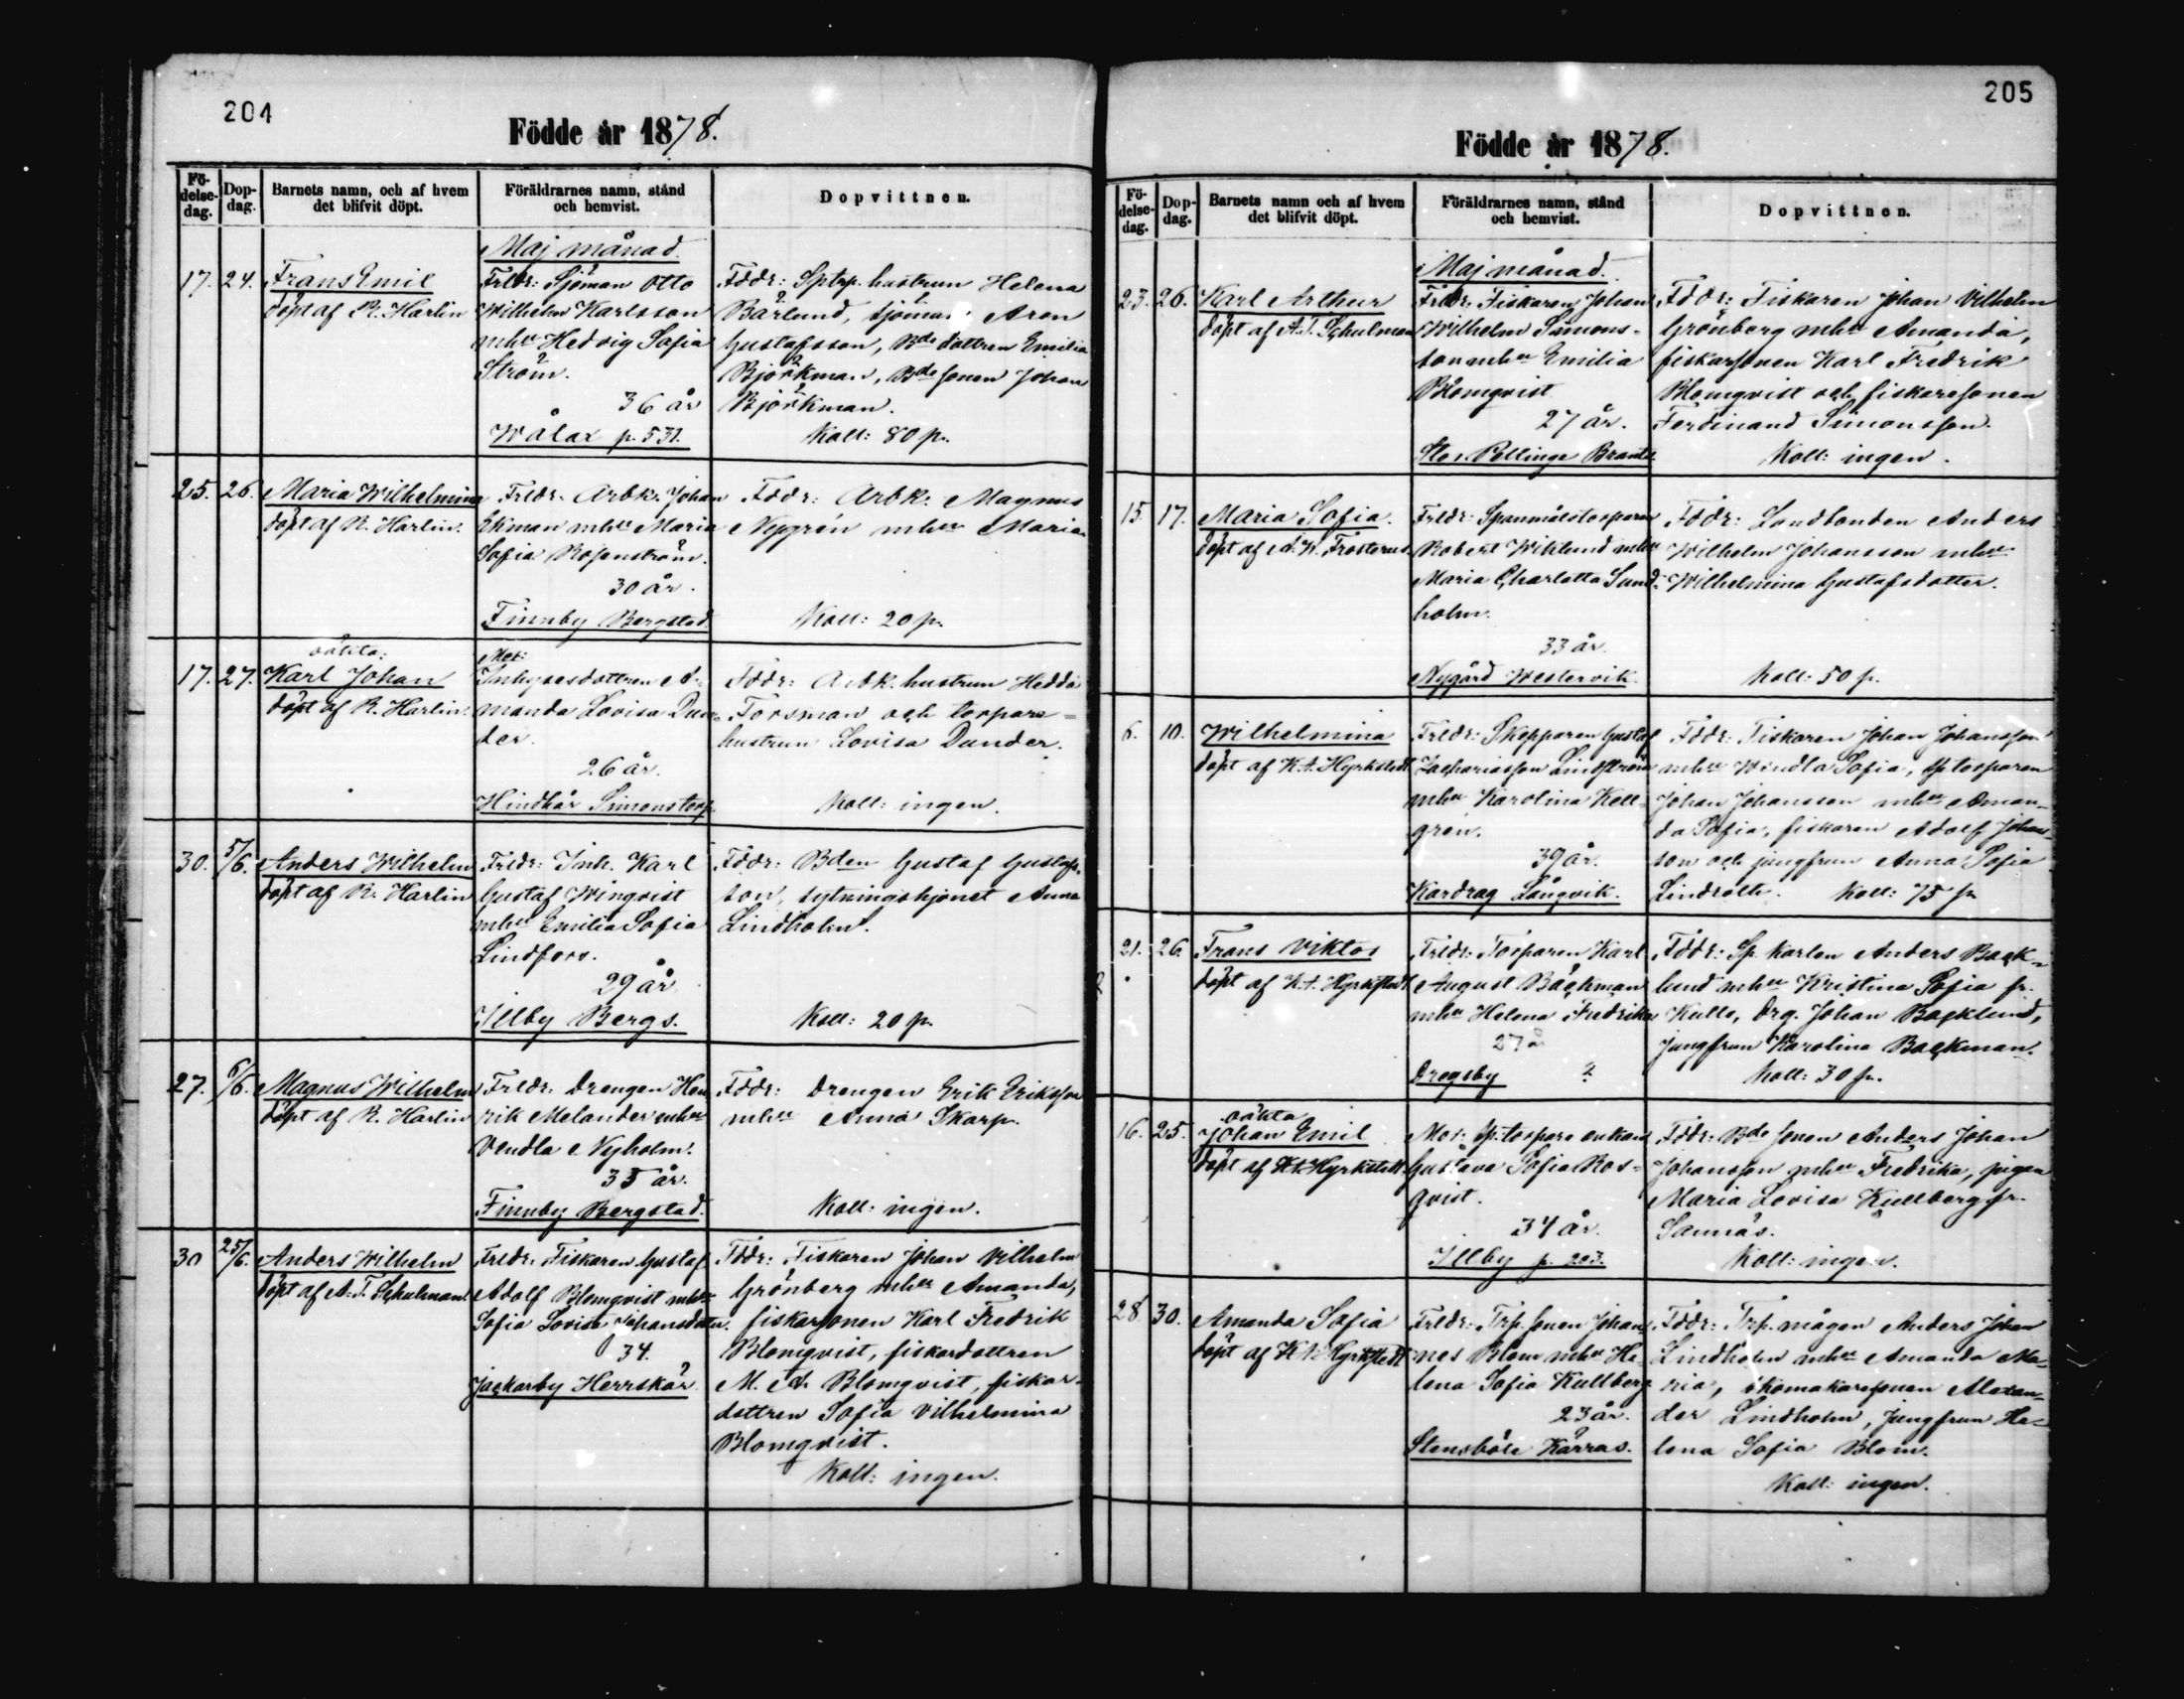 204
Födde år 1878.
Fö-
delse-
dag.
Dop-
dag.
Barnets namn, och af hvem
det blifvit döpt.
Föräldrarnes namn, stånd
och hemvist.
Dopvittnen.
Maj månad.
17. 24.
Frans Emil
döpt af R. Harlin
Frldr: Sjöman Otto
Wilhelm Karlsson
mhu Hedvig Sofia
Ström.
36 år
Wålax p. 531.
Fddr: Sptrp. hustrun Helena
Bärlund, sjöman Aron
Gustafsson, Bde dottren Emilia
Björkman, Bde sonen Johan
Björkman.
Koll: 80 p.
25. 26.
Maria Wilhelmina
döpt af R. Harlin.
Frldr. Arbk. Johan
Ekman mhu Maria
Sofia Rosenström.
30 år.
Finnby Bergstad.
Fddr: Arbk. Magnus
Nygrén mhu Maria
Koll: 20 p.
17. 27.
oäkta:
Karl Johan
döpt af R. Harlin.
Mor:
Inhysesdottren A-
manda Lovisa Dun-
der.
26 år.
Hindhår Simonstorp.
Fddr: Arbk. hustrun Hedda
Forsman och torpare-
hustrun Lovisa Dunder.
Koll: ingen.
30. 5/6.
Anders Wilhelm
döpt af R. Harlin
Frldr: Inh. Karl
Gustaf Winqvist
mhu Emilia Sofia
Lindfors.
29 år
Illby Bergs.
Fddr: Bden Gustaf Gustafs-
son, sytningshjonet Anna
Lindholm.
Koll: 20 p.
27. 6/6.
Magnus Wilhelm
döpt af R. Harlin
Frldr. Drengen Hen
rik Melander mhu
Vendla Nyholm.
35 år.
Finnby Bergstad.
Fddr: Drengen Erik Eriksson
mhu Anna Skarp.
Koll: ingen.
30 25/6.
Anders Wilhelm
döpt af A. T. Schulman.
Frldr. Fiskaren Gustaf
Adolf Blomqvist mhu
Sofia Lovisa Johansdotter.
34.
Jackarby Herrskär.
Fddr: Fiskaren Johan Vilhelm
Grönberg mhu Amanda,
fiskarsonen Karl Fredrik
Blomqvist, fiskardottren
M. A. Blomqvist, fiskar-
dottren Sofia Vilhelmina
Blomqvist.
Koll: ingen.
205
Födde år 1878.
Fö-
delse-
dag.
Dop-
dag.
Barnets namn och af hvem
det blifvit döpt.
Föräldrarnes namn, stånd
och hemvist.
Dopvittnen.
Maj månad.
23. 26.
Karl Arthur
döpt af A. T. Schulman
Frldr: Fiskaren Johan
Wilhelm Simons-
son mhu Emilia
Blomqvist
27 år.
Stor Pellinge
Fddr: Fiskaren Johan Vilhelm
Grönberg mhu Amanda,
fiskarsonen Karl Fredrik
Blomqvist och fiskaresonen
Ferdinand Simonsson.
Koll: ingen.
15. 17.
Maria Sofia.
döpt af A. W. Frosterus.
Frldr: Spanmålstorparen
Robert Wiklund mhu
Maria Charlotta Sund-
holm.
33 år.
Nygård Westervik.
Fddr: Landbonden Anders
Wilhelm Johansson mhu
Wilhelmina Gustafsdotter.
Koll: 50 p.
6. 10.
Wilhelmina
döpt af K. A. Hyrkstedt
Frldr: Skepparen Gustaf
Zachariasson Lindström
mhu Karolina Kell-
gren.
39 år.
Kardrag Långvik.
Fddr: Fiskaren Johan Johansson
mhu Wendla Sofia, sptorparen
Johan Johansson mhu Aman-
da Sofia, fiskaren Adolf Johans-
son och jungfrun Anna Sofia
Lindroth. Koll: 75 p.
21. 26.
Frans Viktor
döpt af K. A. Hyrkstedt.
Frldr: Torparen Karl
August Bäckman
mhu Helena Fredrika
27 å
Dregsby ?
Fddr: Sp. karlen Anders Back-
lund mhu Kristina Sofia fr.
Kullo, Drg. Johan Backlund,
jungfrun Karolina Backman.
Koll: 30 p.
16. 25.
oäkta
Johan Emil
döpt af K. A. Hyrkstedt.
Mor: Sp. torpare enkan
Gustava Sofia Ros-
qvist.
34 år.
Illby p. 203.
Fddr: Bde sonen Anders Johan
Johansson mhu Fredrika, pigan
Maria Lovisa Kullberg fr.
Sannäs.
Koll: ingen.
28 30.
Amanda Sofia
döpt af K. A. Hyrkstedt
Frldr: Trp. sonen Johan
nes Blom mhu He-
lena Sofia Kullberg
23 år.
Stensböle Kärras.
Fddr: Trp. mågen Anders Johan
Lindholm mhu Amanda Ma-
ria, skomakaresonen Alexan-
der Lindholm, Jungfrun He-
lena Sofia Blom.
Koll: ingen.